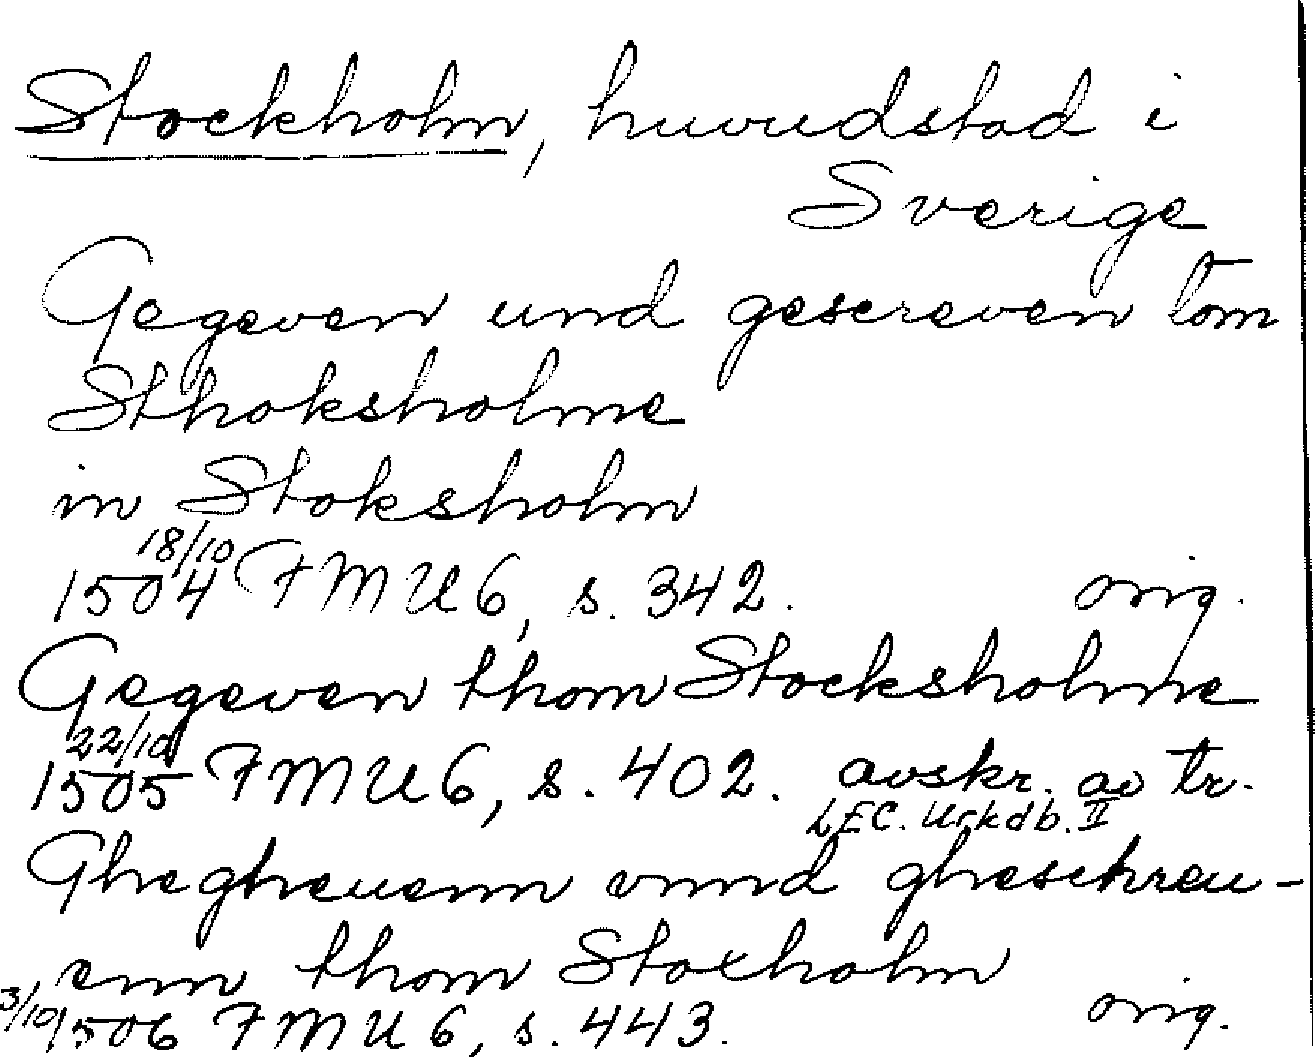 Stockholm, huvudstad i
Sverige
Gegeven und gescreven tom
Sthoksholme
in Stoksholm
18/10
1504 FMU 6, s. 342. orig.
Gegeven thom Stocksholme
22/10
1505 FMU 6, s. 402. avskr. av tr.
LEC. Urkdb. II
Ghegheuenn vnnd gheschreu-
enn thom Stoxholm
3/10 1506 FMU 6, s. 443. orig.